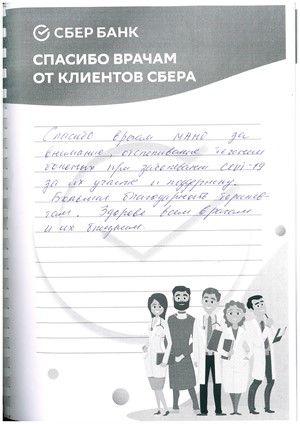 СБЕР БАНК
СПАСИБО ВРАЧАМ
ОТ КЛИЕНТОВ СБЕРА
Спасибо врачам за
внимание, отслеживание
больных при заболевании
за их участие и поддержку.
Большая благодарность терапев-
там. Здоровья всем врачам
и их близким.